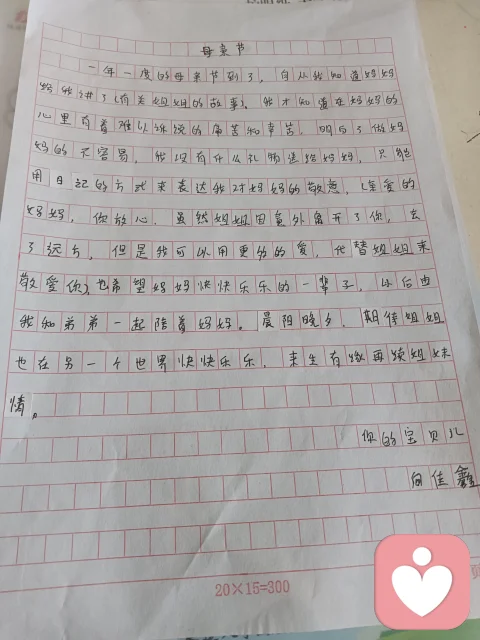 母亲节
一年一度的母亲节到了，自从我知道妈妈
给我讲了(有关姐姐的故事)，我才知道在妈妈的
心里有着难以诉说的痛苦和辛苦，明白了做妈
妈的不容易，我没有什么礼物送给妈妈，只能
用日记的方式来表达我对妈妈的敬意，(亲爱的
妈妈，你放心，虽然姐姐因意外离开了你，去
了远方，但是我可以用更多的爱，代替姐姐来
敬爱你)也希望妈妈快快乐乐的一辈子，以后由
我和弟弟一起陪着妈妈。晨阳晚夕，期待姐姐
也在另一个世界快快乐乐，来生有缘再续姐妹
情。
你的宝贝儿
向佳鑫
20×15=300